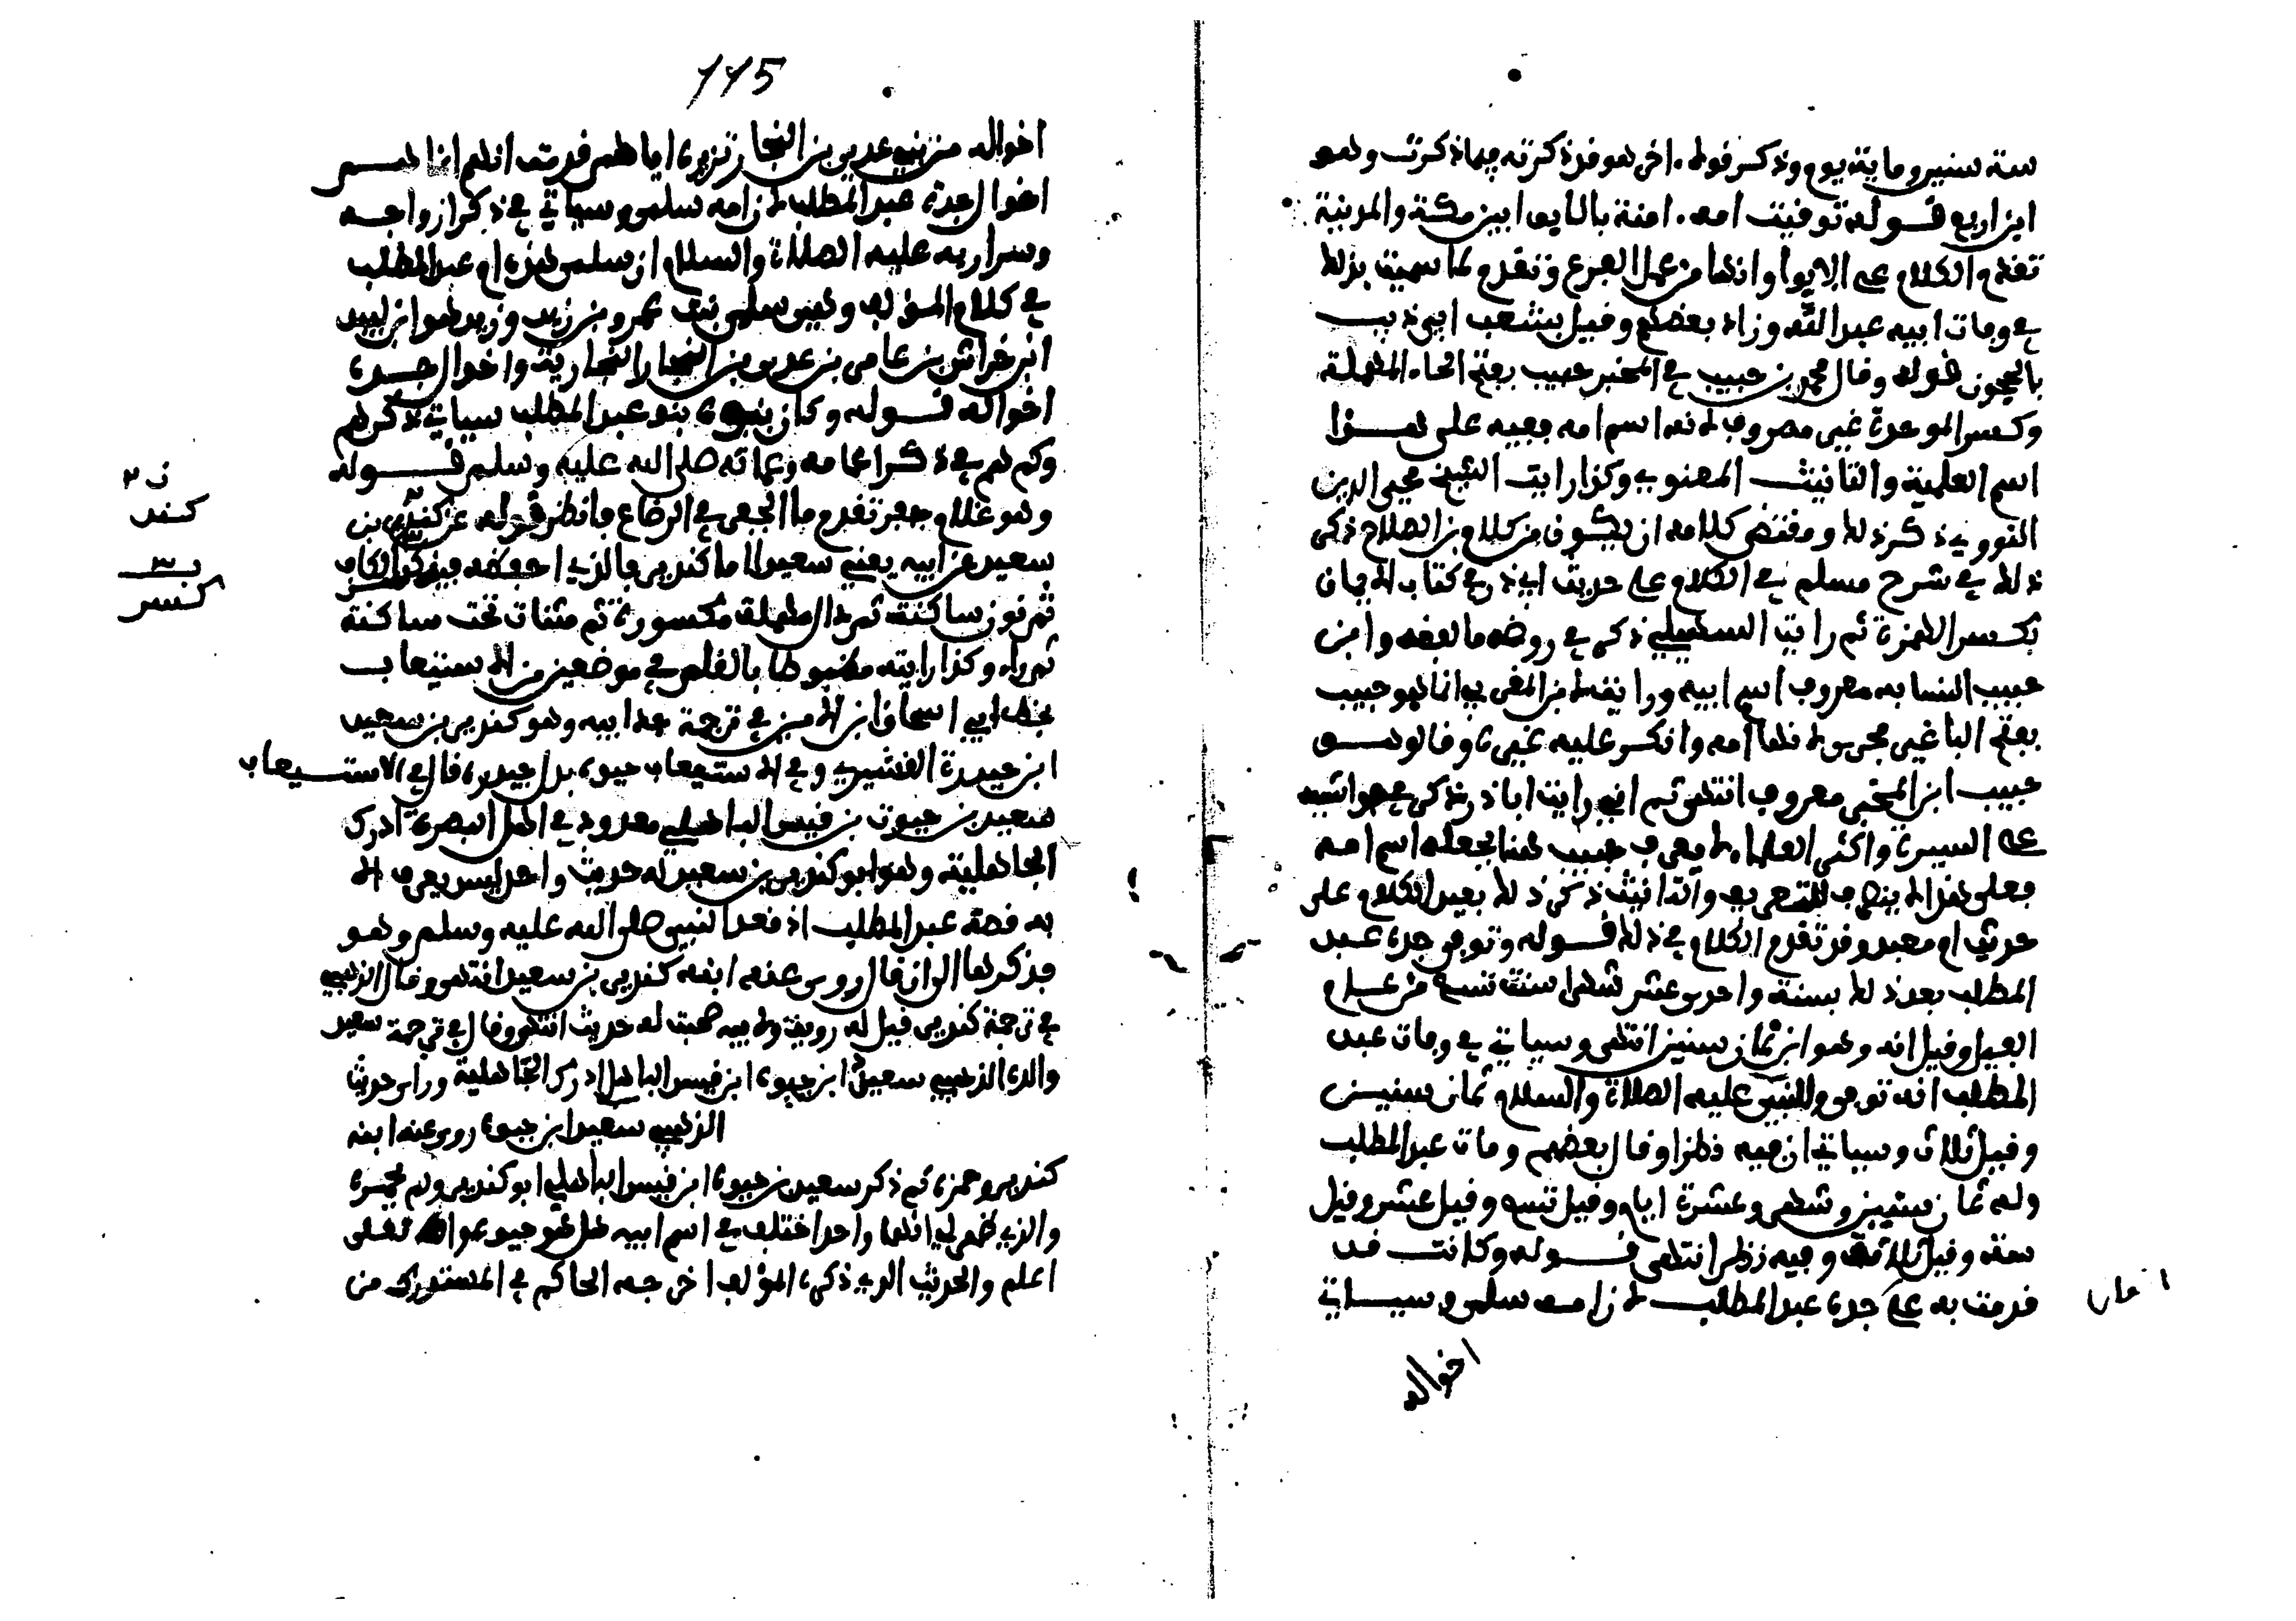 ستة سنين وماية يوم وذكر قولا اخر هو قد ذكرته فيما ذكرت وهو
ابن اربع قوله توفيت امه امنة بالابوا بين مكة والمدينة
تقدم الكلام على الابوا وانها من عمل الفرع وتقدم لما سميت بذلك
في وفات ابيه عبد الله وزاد بعضهم وقيل بشعب ابي ذيب
بالحجون قوله وقال محمد بن حبيب في المحبر حبيب بفتح الحاء المهملة
وكسر الموحدة غير مصروف لانه اسم امه ففيه على هذا
اسم العلمية والتانيث المعنوي وكذا رايت الشيخ محيي الدين
النووي ذكر ذلك ومقتضى كلامه ان يكون من كلام بن الصلاح ذكر
ذلك في شرح مسلم في الكلام على حديث ابي ذر في كتاب الايمان
بكسر الهمزة ثم رايت السهيلي ذكر في روضه ما لفظه وابن
حبيب النسابه معروف اسم ابيه ورايت لابن المغربي انما هو حبيب
بفتح البا غير مجرى لانها امه وانكر عليه غيره وقالوا هو
حبيب ابن المحبر معروف انتهى ثم اني رايت ابا ذر ذكر في حواشيه
على السيرة واكثر العلماء لا يصرف حبيب هنا يجعله اسم امه
فعلى هذا لا ينصرف للتعريف والتانيث ذكر ذلك بعيد الكلام على
حديث ام معبد وقد تقدم الكلام في ذلك قوله وتوفي جده عبد
المطلب بعد ذلك بسنة واحدى عشر شهرا سنة تسع من عام
الفيل وقيل انه وهو ابن ثمان سنين انتهى وسياتي في وفات عبد
المطلب انه توفي وللنبي عليه الصلاة والسلام ثمان سنين
وقيل ثلاث وسياتي ان فيه نظرا وقال بعضهم ومات عبد المطلب
وله ثمان سنين وشهر وعشرة ايام وقيل تسع وقيل عشر وقيل
ستة وقيل ثلاثة وفيه نظر انتهى قوله وكانت قد
قدمت به على جده عبد المطلب لان امه سلمى وسياتي
اخواله
115
اخواله من بني عدي بن النجار تزيره اياهم فدت انهم انما هم
اخوال جده عبد المطلب لان امه سلمى وسياتي في ذكر ازواجه
وسراريه عليه الصلاة والسلام ان سلمى هذه ام عبد المطلب
في كلام المؤلف وهي سلمى بنت عمرو بن زيد وزيد هو ابن لبيد
ابن خراش بن عامر بن عدي بن النجار النجارية واخوال جده
اخواله قوله وكان بنوه بنو عبد المطلب سياتي ذكرهم
وكم هم في ذكر اعمامه وعماته صلى الله عليه وسلم قوله
وهو غلام جفر تقدم ما الجفر في الرضاع فانظره قوله عن كندير بن
سعيد عن ابيه يعني سعيدا اما كندير فالذي احفظه فيه كسر الكاف
ثم نون ساكنة ثم دال مهملة مكسورة ثم مثنات تحت ساكنة
ثم راء وكذا رايته مضبوطا بالقلم في موضعين من الاستيعاب
بخط ابي اسحاق ابن الامين في ترجمة هذا ابيه وهو كندير بن سعيد
ابن حيدة القشيري وفي الاستيعاب حيوة بدل حيدة قال في الاستيعاب
سعيد بن حيوة بن قيس الباهلي معدود في اهل البصرة ادرك
الجاهلية وهو ابو كندير بن سعيد له حديث واحد ليس يعرف الا
به قصة عبد المطلب اذ فقد النبي صلى الله عليه وسلم وهو
فذكرها الى ان قال روى عنه ابنه كندير بن سعيد انتهى وقال الذهبي
في ترجمة كندير قيل له روية ولابيه صحبة له حديث انتهى وقال في ترجمة سعيد
والده الذهبي سعيد ابن حيوة ابن قيس الباهلي ادرك الجاهلية وراى حديثا
الذهبي سعيد ابن حيوة روى عنه ابنه
كندير وحمزة ثم ذكر سعيد بن حيوة ابن قيس الباهلي ابو كندير ولم يحمره
والذي ظهر لي انهما واحد اختلف في اسم ابيه هل هو حيوة او تعلى
اعلم والحديث الذي ذكره المؤلف اخرجه الحاكم في المستدرك من
كند
كسر